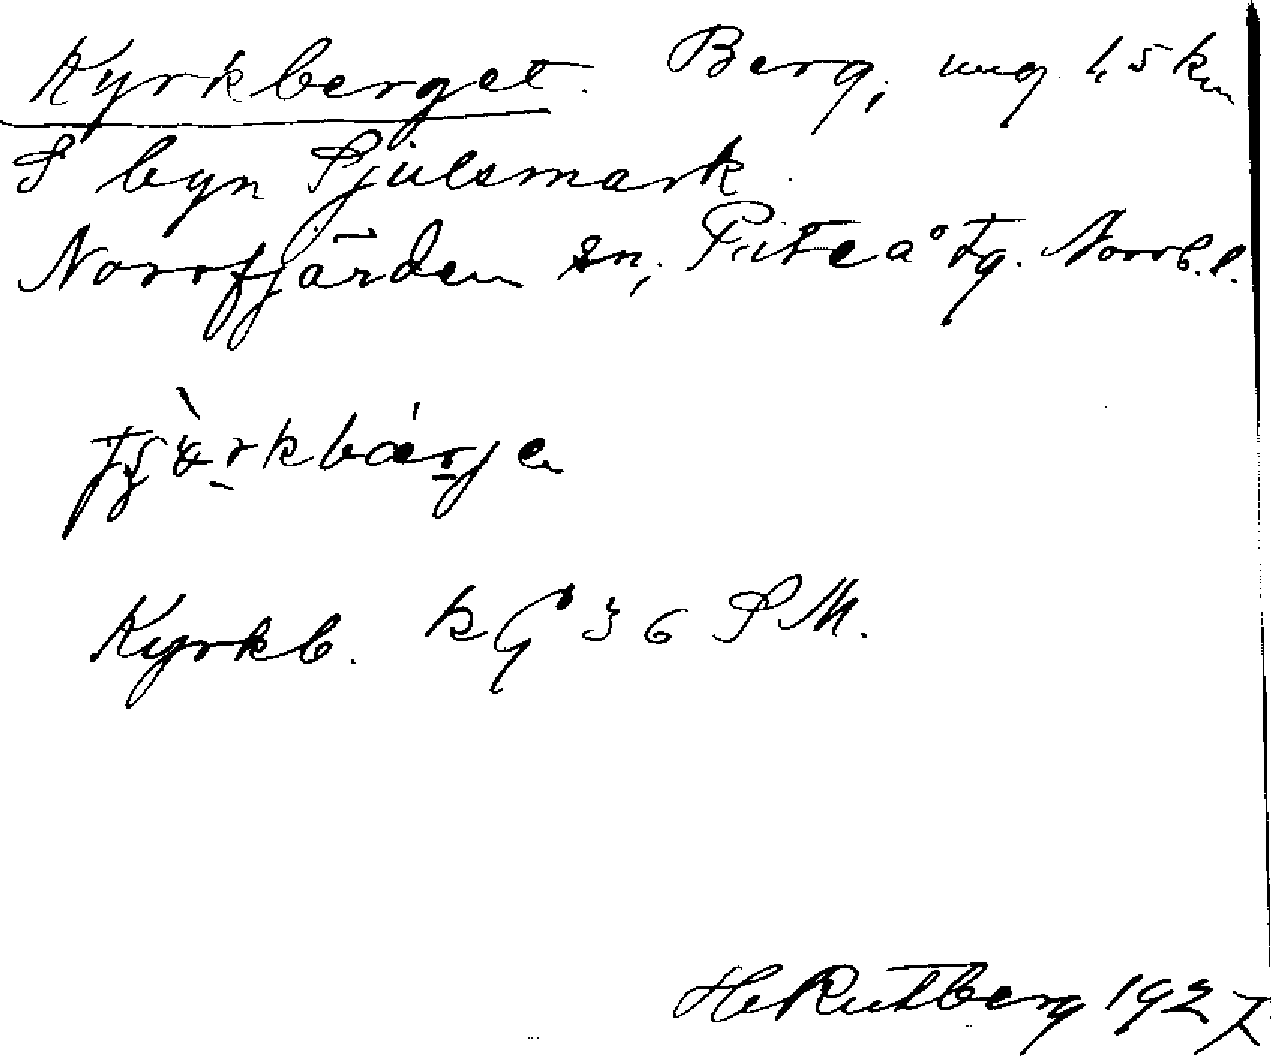 Kyrkberget. Berg, ung 1,5 km
S byn Sjulsmark.
Norrfjärden sn, Piteå tg. Norrb. l.
Kyrkb. kg 36 SM.
H. Rutberg 1927